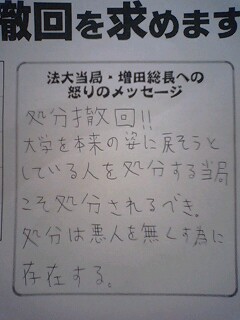 撤回を求めます
法大当局・増田総長への
怒りのメッセージ
処分撤回!!
大学を本来の姿に戻そうと
している人を処分する当局
こそ処分されるべき。
処分は悪人を無くす為に
存在する。